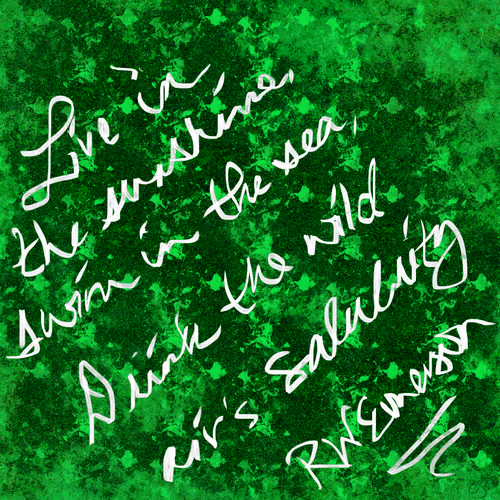 Live in
the sunshine,
swim in the sea,
Drink the wild
air's salubrity
RW Emerson